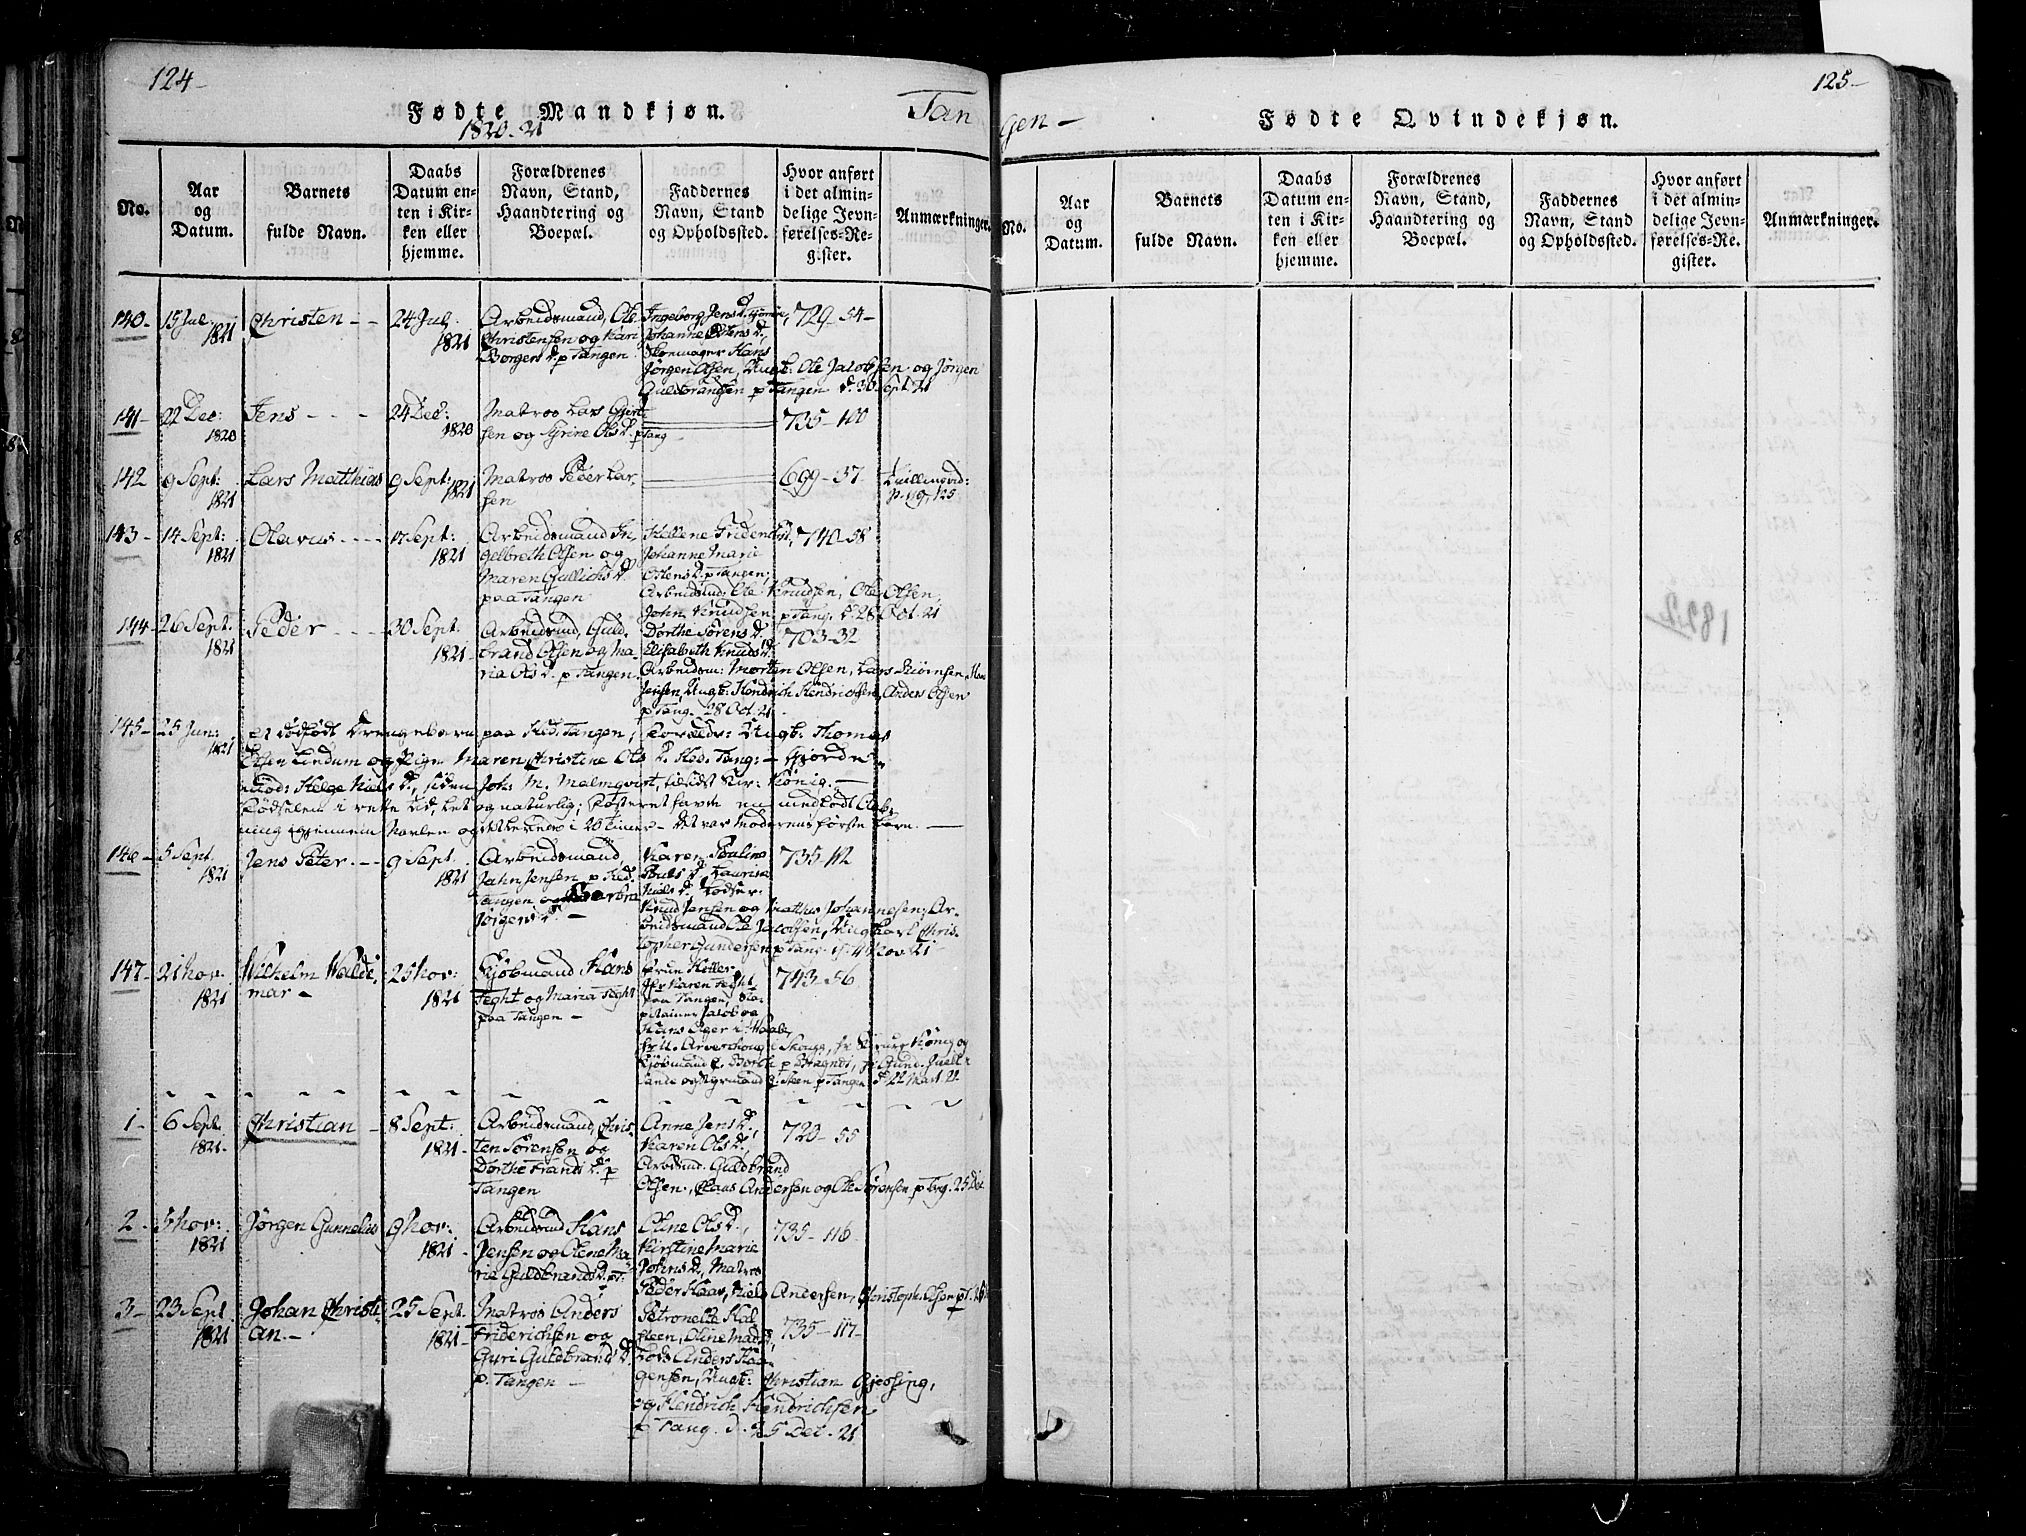 124-
Fødte Mandkjøn.
1820-21
Tan
No.
Aar og Datum.
Barnets fulde Navn.
Daabs Datum enten i Kirken eller hjemme.
Forældrenes Navn, Stand, Haandtering og Boepæl.
Faddernes Navn, Stand og Opholdssted.
Hvor anført i det almindelige Jevnførelses-Register.
Anmærkninger.
140- 15 Jul. 1821
Christen
24 Jul. 1821
Arbeidsmand, Ole
Christensen og Kari
Borgers D. p Tangen
Ingeborg Jens D.
Johanne Olens D.,
Skomager Hans
Jørgen Olsen, Ungk. Ole Jacobsen og Jørgen
Guldbrandsen p Tangen d. 30 Sept 21
729-54-
141- 22 Dec: 1820
Jens
24 Dec: 1820
Matros Lars
sen og Syrine Ols D. p Tang
735-100
142 9 Sept: 1821
Lars Matthias
9 Sept: 1821
Matros Peder Lar-
sen
699-37
p. 119, 125
143- 14 Sept: 1821
Olavus
17 Sept: 1821
Arbeidsmand In-
gelbreth Olsen og
Maren Gullichs D.
paa Tangen
Johanne Marie
Olens D. p Tangen;
Arbeidsmd: Ole Knudsen, Ole Olsen,
John Knudsen p Tang. d. 28 Oct. 21
740-58
144- 26 Sept. 1821
Peder
30 Sept. 1821
Arbeidsmd, Guld-
brand Olsen og Ma-
ria Ols D. p Tangen.
Dorthe Sørens D.
Elisabeth Knuds D.
Arbeidsm: Morten Olsen, Lars
Jensen, Ungk: Hendrich Hendrichsen, Anders Olsen
p Tang. 28 Oct. 21
703-32
145- 25 Jun: 1821
et dødfødt Drengebarn paa Tangen; Forældr: Ungk. Thomas
Olsen Lindum og Pigen Maren Christine Ols D. Tang: - Gjorde-
mod: Helge Niels D., siden Joh: M. Malmqvist, Kønig.-
Fødselen i rette Tid, let og naturlig; Fosteret havde en medfødt Aab-
ning igjennem i 20 Timer- Det var Moderens første Barn.
146- 5 Sept. 1821
Jens Peter
9 Sept. 1821
Arbeidsmand,
Jahn Jensen p
Tangen og Barbra
Jørgens D.
Karen Pouline
Pouls D. Laurisa
Niels D.
Knud Jensen og Mathis Johannesen; Ar-
beidsmand Ole Jacobsen, Ungkarl Chris-
topher Gundersen p Tang. d. 4 Nov. 21
735-112
147- 21 Nov. 1821
Wilhelm Walde-
mar-
25 Nov: 1821
Kjøbmand Hans
Feght og Maria Feght
paa Tangen-
Frue Holter
Karen Feght
paa Tangen,
Jacob og
Hans
Kønig og
Kjøbmand Borch p Bragnes,
Steen p Tangen d 22 Mart 22
743-56
1- 6 Sept. 1821-
Christian
8 Sept: 1821-
Arbeidsmand, Chris-
ten Sørensen og
Dorthe Frands D. p
Tangen
Anne Jens D.,
Karen Ols D.,
Arbdsmd. Guldbrand
Olsen, Claus Andersen og Ole Sørensen p Tang. 25 Dec
720-55
2- 5 Nov: 1821
Jørgen Gunnelius
9 Nov: 1821-
Arbeidsmd Hans
Jensen og Olene Ma-
ria Guldbrands D. p T.
Oline Ols D.,
Kirstine Marie
Johns D., Matros
Peder Haas, Niels Andersen, Christoph. Olsen p T.
735-116
3- 23 Sept 1821
Johan Christi-
an.-
25 Sept. 1821-
Matros Anders
Friderichsen og
Guri Guldbrands D.
p. Tangen-
Petronelle Hal-
steen, Oline Mads D.
Lods Anders Haa-
gensen, Ungk: Christian Gjessing,
og Hendrich Hendrichsen
p Tang. d. 25 Dec. 21
735-117-
125-
gen-
Fødte Qvindekjøn.
No.
Aar og Datum.
Barnets fulde Navn.
Daabs Datum enten i Kirken eller hjemme.
Forældrenes Navn, Stand, Haandtering og Boepæl.
Faddernes Navn, Stand og Opholdssted.
Hvor anført i det almindelige Jevnførelses-Register.
Anmærkninger.